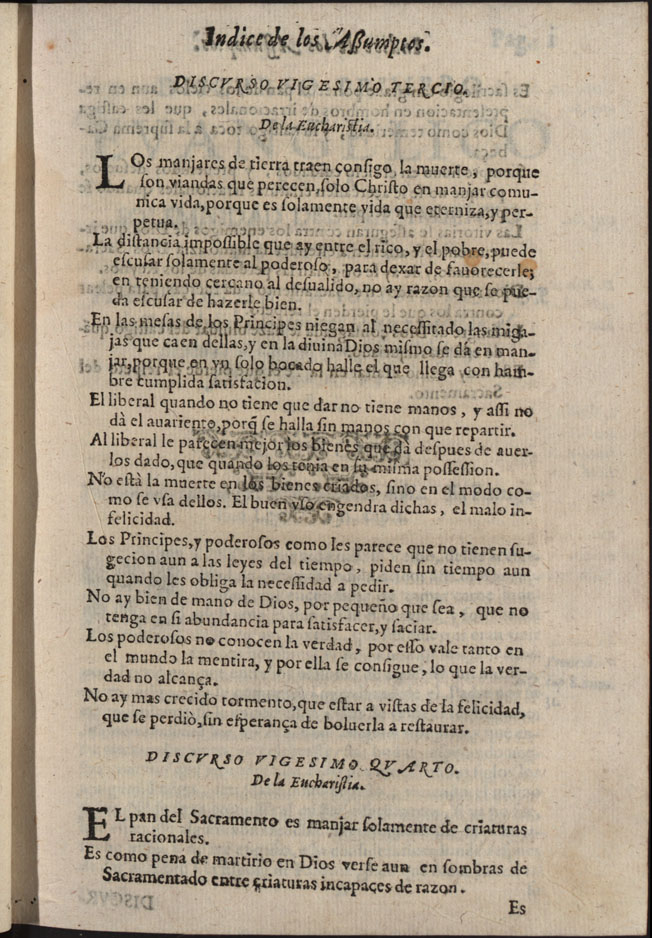 Indice de los Aſſumptos.
DISCVRSO VIGESIMO TERCIO.
De la Euchariſtia.
LOs manjares de tierra traen conſigo la muerte, porque
ſon viandas que perecen, ſolo Chriſto en manjar comu-
nica vida, porque es ſolamente vida que eterniza, y per-
petua.
La diſtancia impoſſible que ay entre el rico, y el pobre, puede
eſcuſar ſolamente al poderoſo, para dexar de fauorecerle;
en teniendo cercano al deſualido, no ay razon que ſe pue-
da eſcuſar de hazerle bien.
En las meſas de los Principes niegan al neceſſitado las miga-
jas que caen dellas, y en la diuina Dios miſmo ſe dà en man-
jar, porque en vn ſolo bocado halle el que llega con ham-
bre cumplida ſatisfacion.
El liberal quando no tiene que dar no tiene manos, y aſſi no
dà el auariento, porq̃ ſe halla ſin manos con que repartir.
Al liberal le parecen mejor los bienes que dà deſpues de auer-
los dado, que quando los tenia en ſu miſma poſſeſsion.
No eſtà la muerte en los bienes criados, ſino en el modo co-
mo ſe vſa dellos. El buen vſo engendra dichas, el malo in-
felicidad.
Los Principes, y poderoſos como les parece que no tienen ſu-
gecion aun a las leyes del tiempo, piden ſin tiempo aun
quando les obliga la neceſſidad a pedir.
No ay bien de mano de Dios, por pequeño que ſea, que no
tenga en ſi abundancia para ſatisfacer, y ſaciar.
Los poderoſos no conocen la verdad, por eſſo vale tanto en
el mundo la mentira, y por ella ſe conſigue, lo que la ver-
dad no alcança.
No ay mas crecido tormento, que eſtar a viſtas de la felicidad,
que ſe perdiò, ſin eſperança de boluerla a reſtaurar.
DISCVRSO VIGESIMO QVARTO.
De la Euchariſtia.
EL pan del Sacramento es manjar ſolamente de criaturas
racionales.
Es como pena de martirio en Dios verſe aun en ſombras de
Sacramentado entre criaturas incapaces de razon.
Es